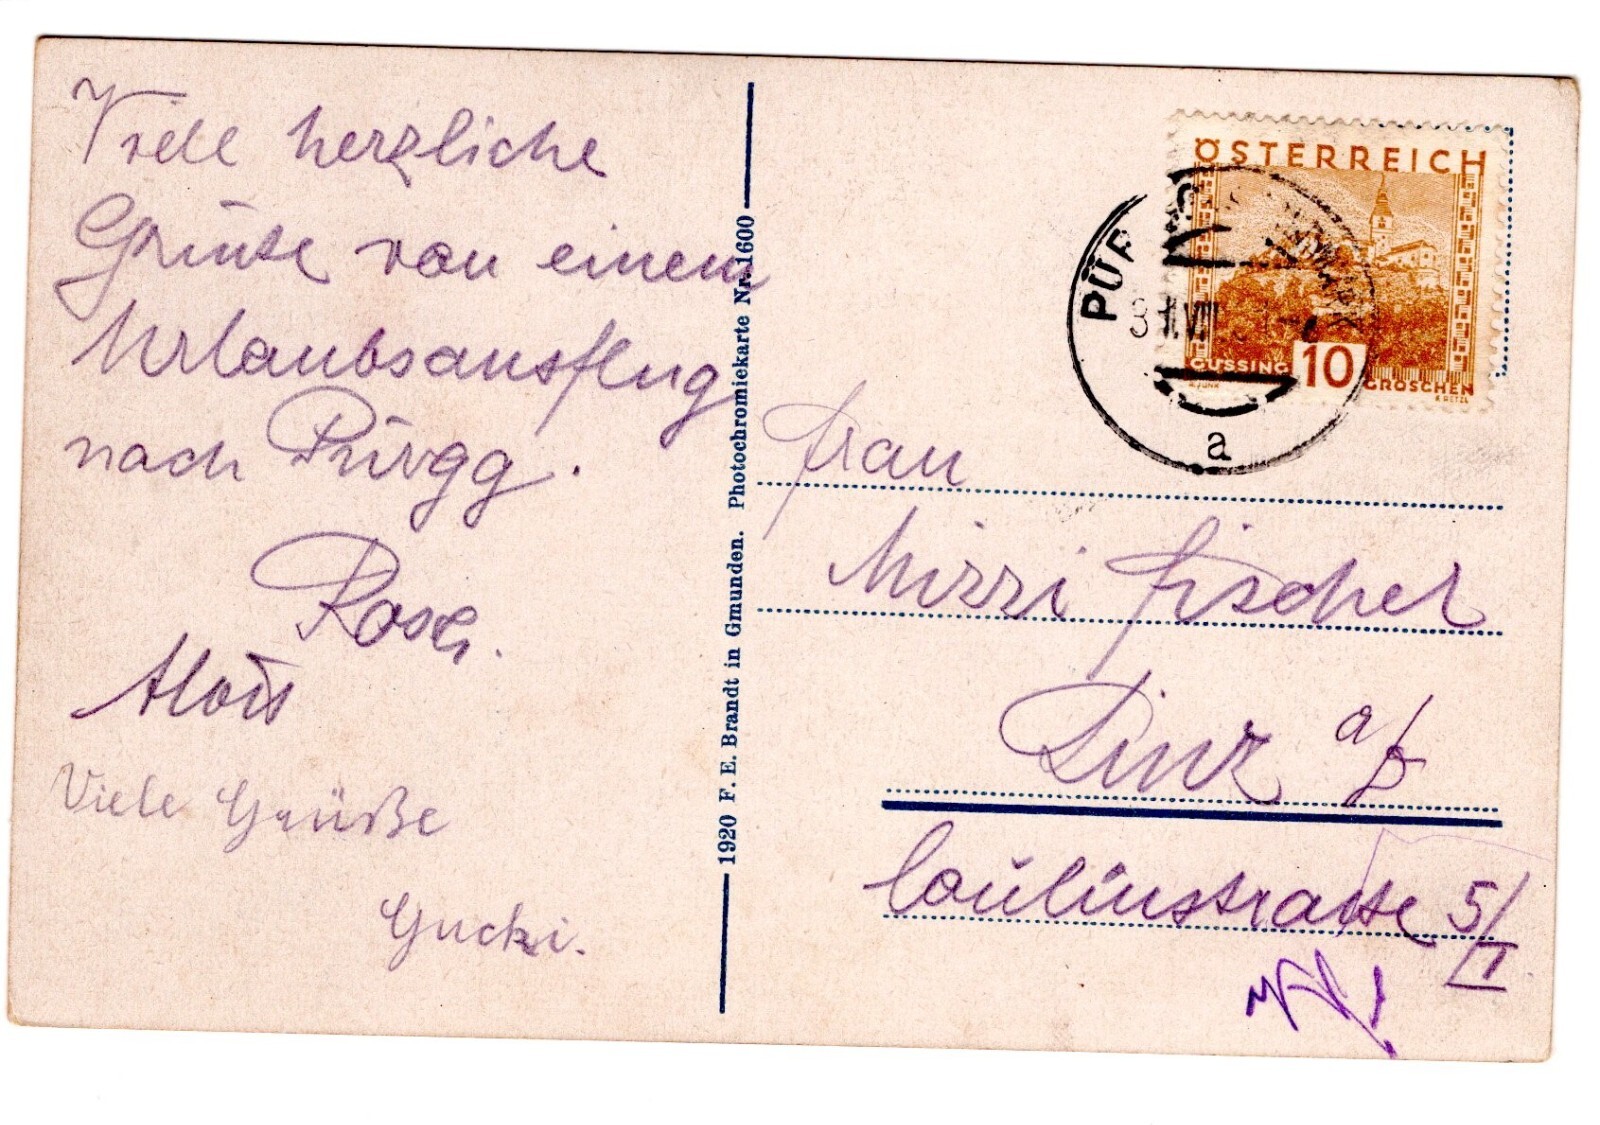 Viele herzliche
Grüsse von einem
Urlaubsausflug
nach Pürgg.
Alois
Viele Grüße
Gucki.
1920 F. E. Brandt in Gmunden. Photochromiekarte Nr. 1600
ÖSTERREICH
GÜSSING 10 GROSCHEN
PÜR
VIII
a
Frau
Mizzi Fischer
Linz a/D
5/I